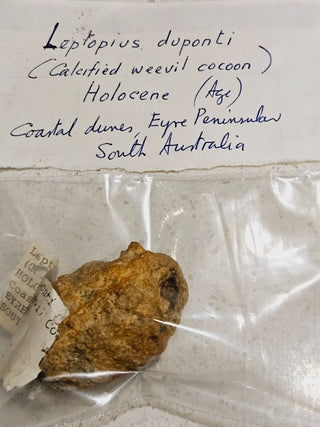 Leptopius duponti
(Calcified weevil cocoon)
Holocene (Age)
Coastal dunes, Eyre Peninsular
South Australia
Lept
HOLO
Coast
EYRE
SOUT